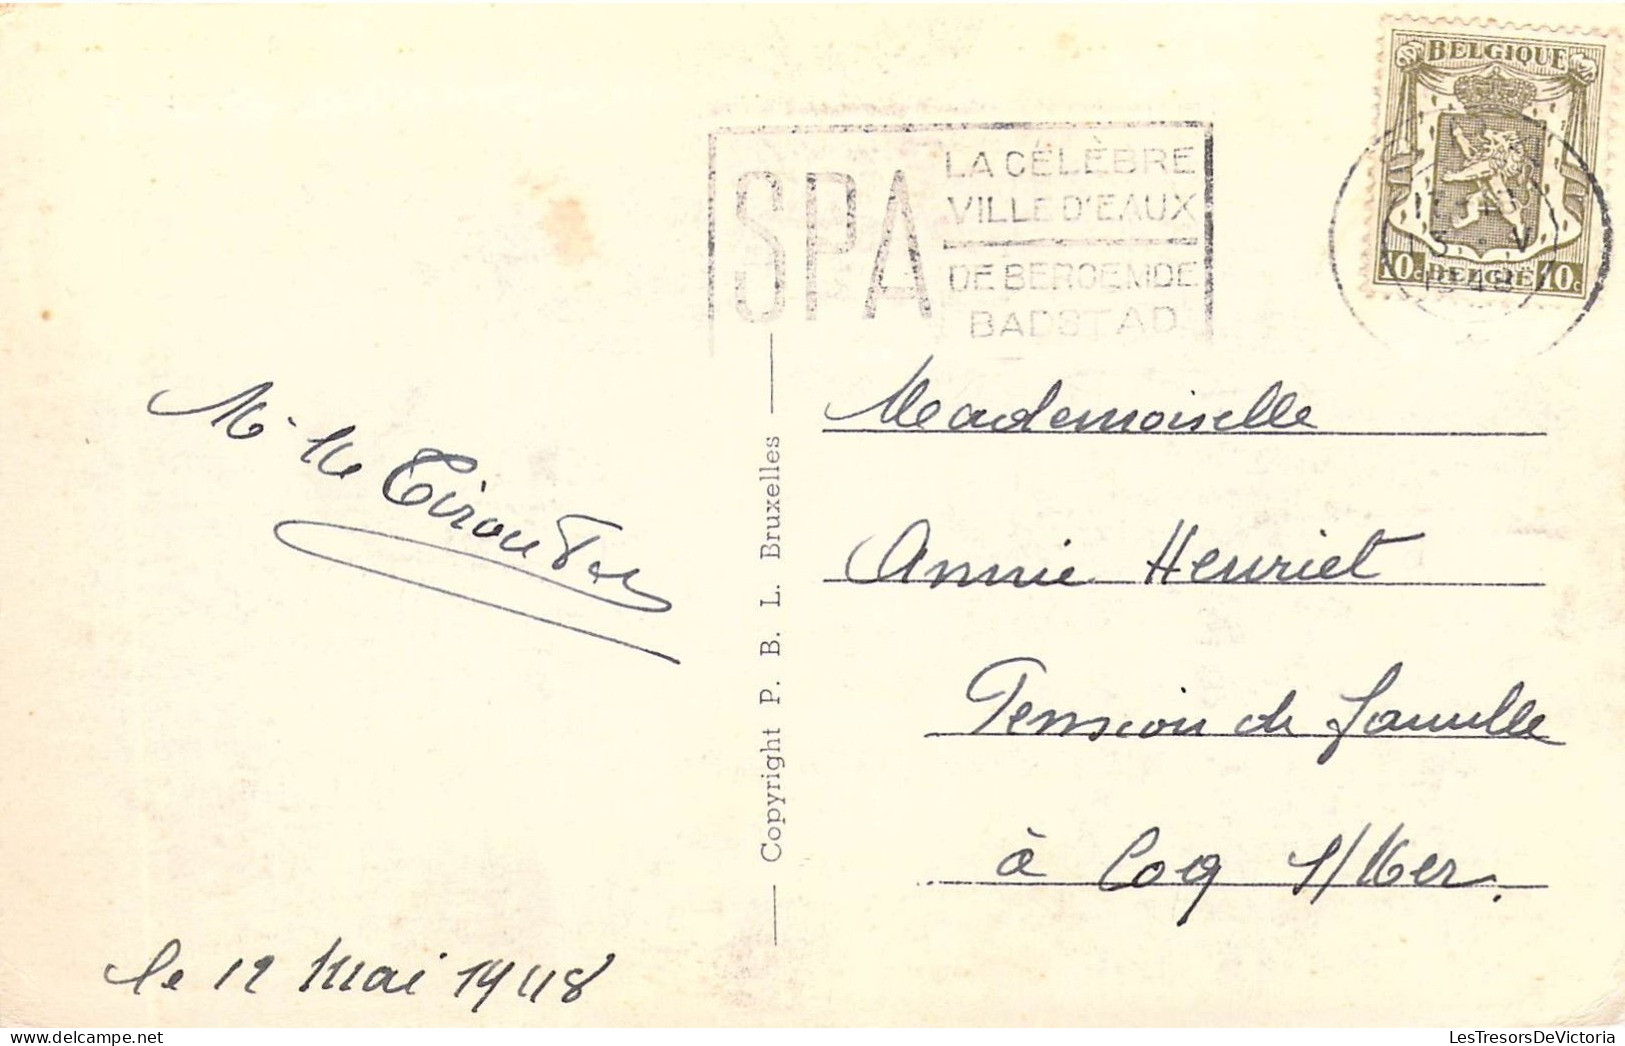 BELGIQUE
10c BELGIE 10c
SPA
LA CÉLÈBRE
VILLE D'EAUX
DE BEROEMDE
BADSTAD
Mademoiselle
Annie Henriet
Pension de famille
à Coq s/Mer.
le 12 Mai 1948
Copyright P. B. L. Bruxelles
LesTresorsDeVictoria